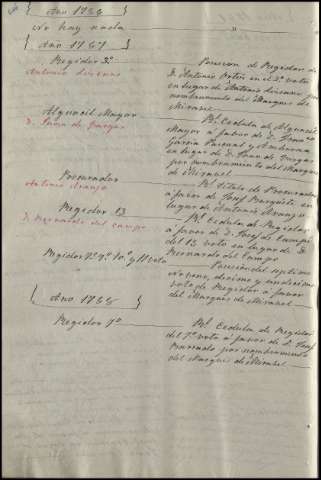 Año 1766
No hay nada "
Año 1767
Regidor 2º
Antonio Liscano
Posesion de Regidor de
D. Antonio Ortes en el 2º voto
en lugar de Antonio Liscano por
nombramiento del Marques de
Mirabel
Alguacil Mayor
D. Juan de Vargas
Rl. Cedula de Alguacil
Mayor a favor de D.
Garcia Pascual y
en lugar de D. Juan de Vargas
por nombramiento del Marques
de Mirabel
Procurador
Antonio Aranjo
Rl. Titulo de Procurador
a favor de Josef
lugar de Antonio Aranjo
Regidor 13
D. Bernardo del Campo
Rl. Cedula de Regidor
a favor de D. Josef de Campo
del 13 voto en lugar de D.
Bernardo del Campo
Regidor 7º 9º 10º y 11 voto
Posesion del septimo
noveno, decimo y undecimo
voto de Regidor a favor
del Marques de Mirabel
Año 1768
Regidor 7º
Rl. Cedula de Regidor
del 7º voto a favor de D. Josef
por nombramiento
del Marques de Mirabel